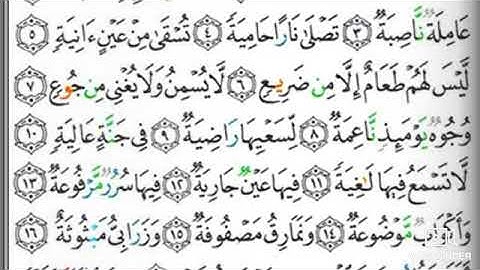 عَامِلَةٌ نَّاصِبَةٌ ٣ تَصْلَىٰ نَارًا حَامِيَةً ٤ تُسْقَىٰ مِنْ عَيْنٍ ءَانِيَةٍ ٥
لَّيْسَ لَهُمْ طَعَامٌ إِلَّا مِن ضَرِيعٍ ٦ لَّا يُسْمِنُ وَلَا يُغْنِى مِن جُوعٍ ٧
وُجُوهٌ يَوْمَئِذٍ نَّاعِمَةٌ ٨ لِّسَعْيِهَا رَاضِيَةٌ ٩ فِى جَنَّةٍ عَالِيَةٍ ١٠
لَّا تَسْمَعُ فِيهَا لَٰغِيَةً ١١ فِيهَا عَيْنٌ جَارِيَةٌ ١٢ فِيهَا سُرُرٌ مَّرْفُوعَةٌ ١٣
وَأَكْوَابٌ مَّوْضُوعَةٌ ١٤ وَنَمَارِقُ مَصْفُوفَةٌ ١٥ وَزَرَابِىُّ مَبْثُوثَةٌ ١٦